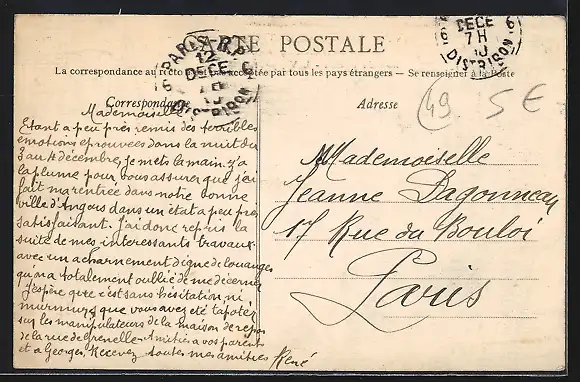 CARTE POSTALE
La correspondance au recto n'est pas acceptée par tous les pays étrangers — Se renseigner à la Poste
Correspondance
Adresse
PARIS R.P
12
DECE
6
DISTRIBON
DECE 6
7H
10
DISTRIBON
49
5€
Mademoiselle
Etant a peu près remis des terribles
emotions eprouvées dans la nuit du
3 au 4 décembre, je mets la main a
la plume pour vous assurer que j'ai
fait ma rentrée dans notre bonne
ville d'Angers dans un état a peu près
satisfaisant. J'ai donc repris la
suite de mes interessants travaux
avec un acharnement digne de louanges
qu'on a totalement oublié de me décerner
J'espère que c'est sans hésitation ni
murmure que vous avez été tapoter
sur les manipulateurs de la maison de
de la rue de Grenelle. Amitiés a vos parents
et a Georges. Recevez toutes mes amitiés
René
Mademoiselle
Jeanne Dagonneau
17 Rue du Bouloi
Paris